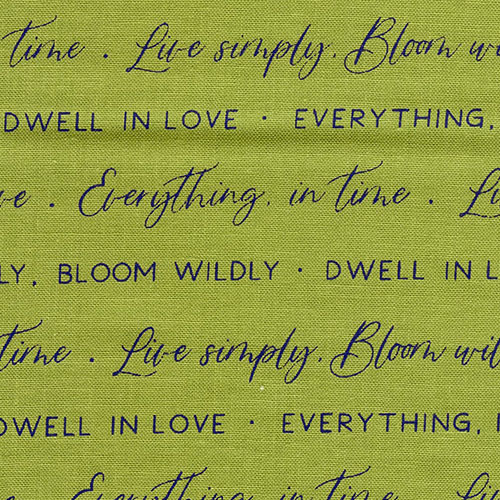 time . Live simply. Bloom wi
DWELL IN LOVE · EVERYTHING,
ve . Everything, in time . Li
LY, BLOOM WILDLY · DWELL IN L
time . Live simply. Bloom wil
DWELL IN LOVE · EVERYTHING, I
Everything, in time . Li